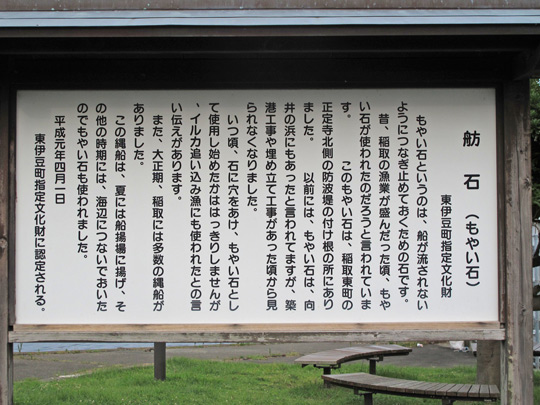 舫石（もやい石）
東伊豆町指定文化財
もやい石というのは、船が流されない
ようにつなぎ止めておくための石です。
昔、稲取の漁業が盛んだった頃、もや
い石が使われたのだろうと言われていま
す。　このもやい石は、稲取東町の
正定寺北側の防波堤の付け根の所にあり
ました。　以前には、もやい石は、向
井の浜にもあったと言われてますが、築
港工事や埋め立て工事があった頃から見
られなくなりました。
いつ頃、石に穴をあけ、もやい石とし
て使用し始めたかははっきりしませんが
、イルカ追い込み漁にも使われたとの言
い伝えがあります。
また、大正期、稲取には多数の縄船が
ありました。
この縄船は、夏には船揚場に揚げ、そ
の他の時期には、海辺につないでおいた
のでもやい石も使われました。
平成元年四月一日
東伊豆町指定文化財に認定される。